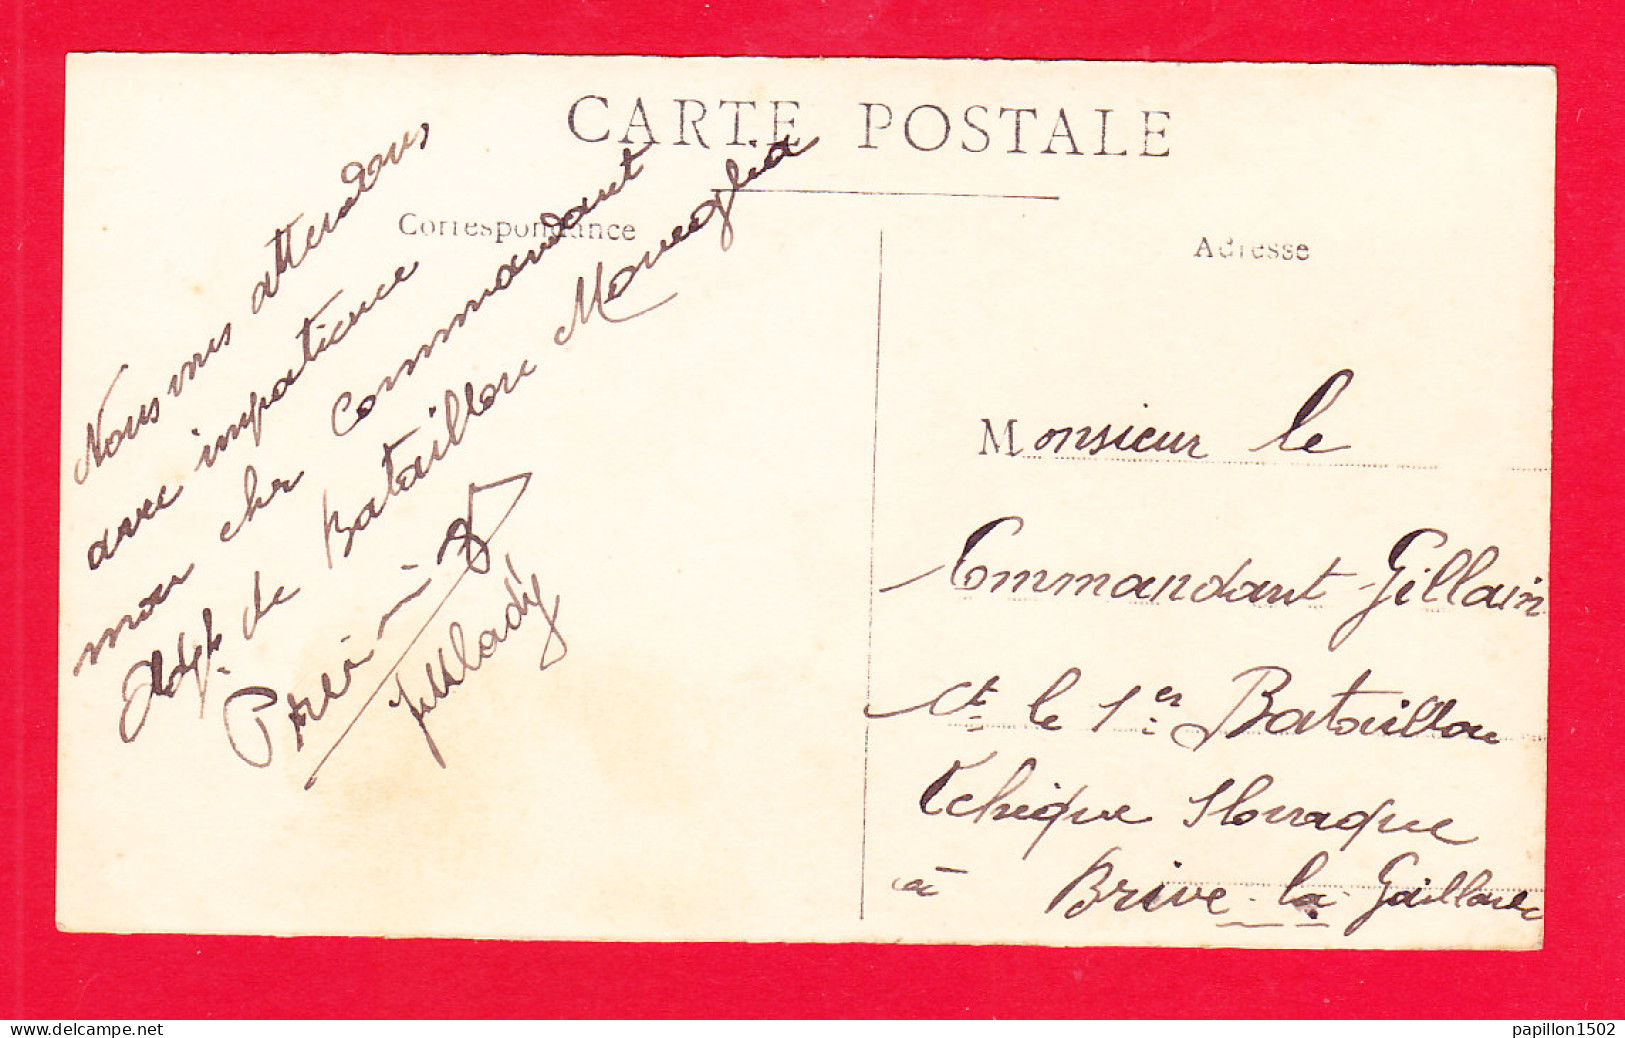 CARTE POSTALE
Correspondance
Adresse
Nous vous attendons
avec impatience
mon cher Commandant
Adjt. de Bataillon Moneglia
Monsieur le
Commandant Gillain
Ct le 1er Bataillon
Tchèque Slovaque
à Brive-la-Gaillarde
delcampe.net
papillon1502